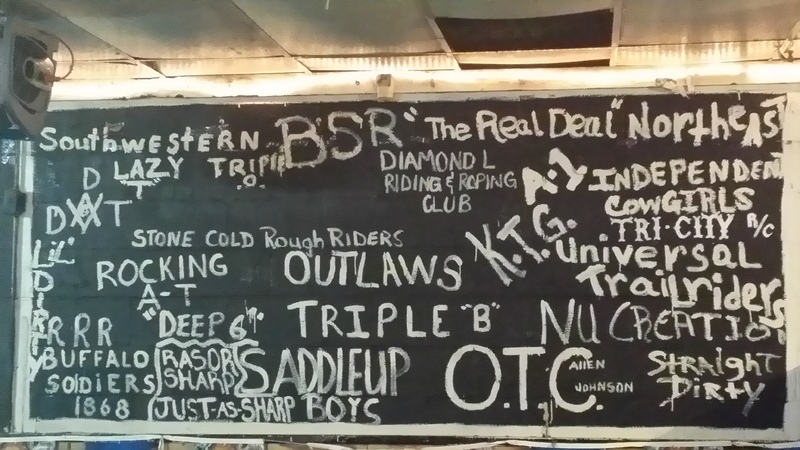 Southwestern
BSR "The Real Deal"
Northeast
D
LAZY
T
TRIPLE
.O.
DIAMOND L
RIDING & ROPING
CLUB
A-1
INDEPENDENT
COWGIRLS
TRI-CITY R/C
D T
STONE COLD Rough RIDERS
K.T.G.
Universal
Trailriders
LiL'
DIRTY
ROCKING
A-T
OUTLAWS
RRR
"DEEP 6"
TRIPLE "B"
NU CREATION
BUFFALO
SOLDIERS
1868
RASOR
SHARP
JUST-AS-SHARP
SADDLEUP
BOYS
O.T.C.
AllEN
JOHNSON
STRAIGHT
DIRTY